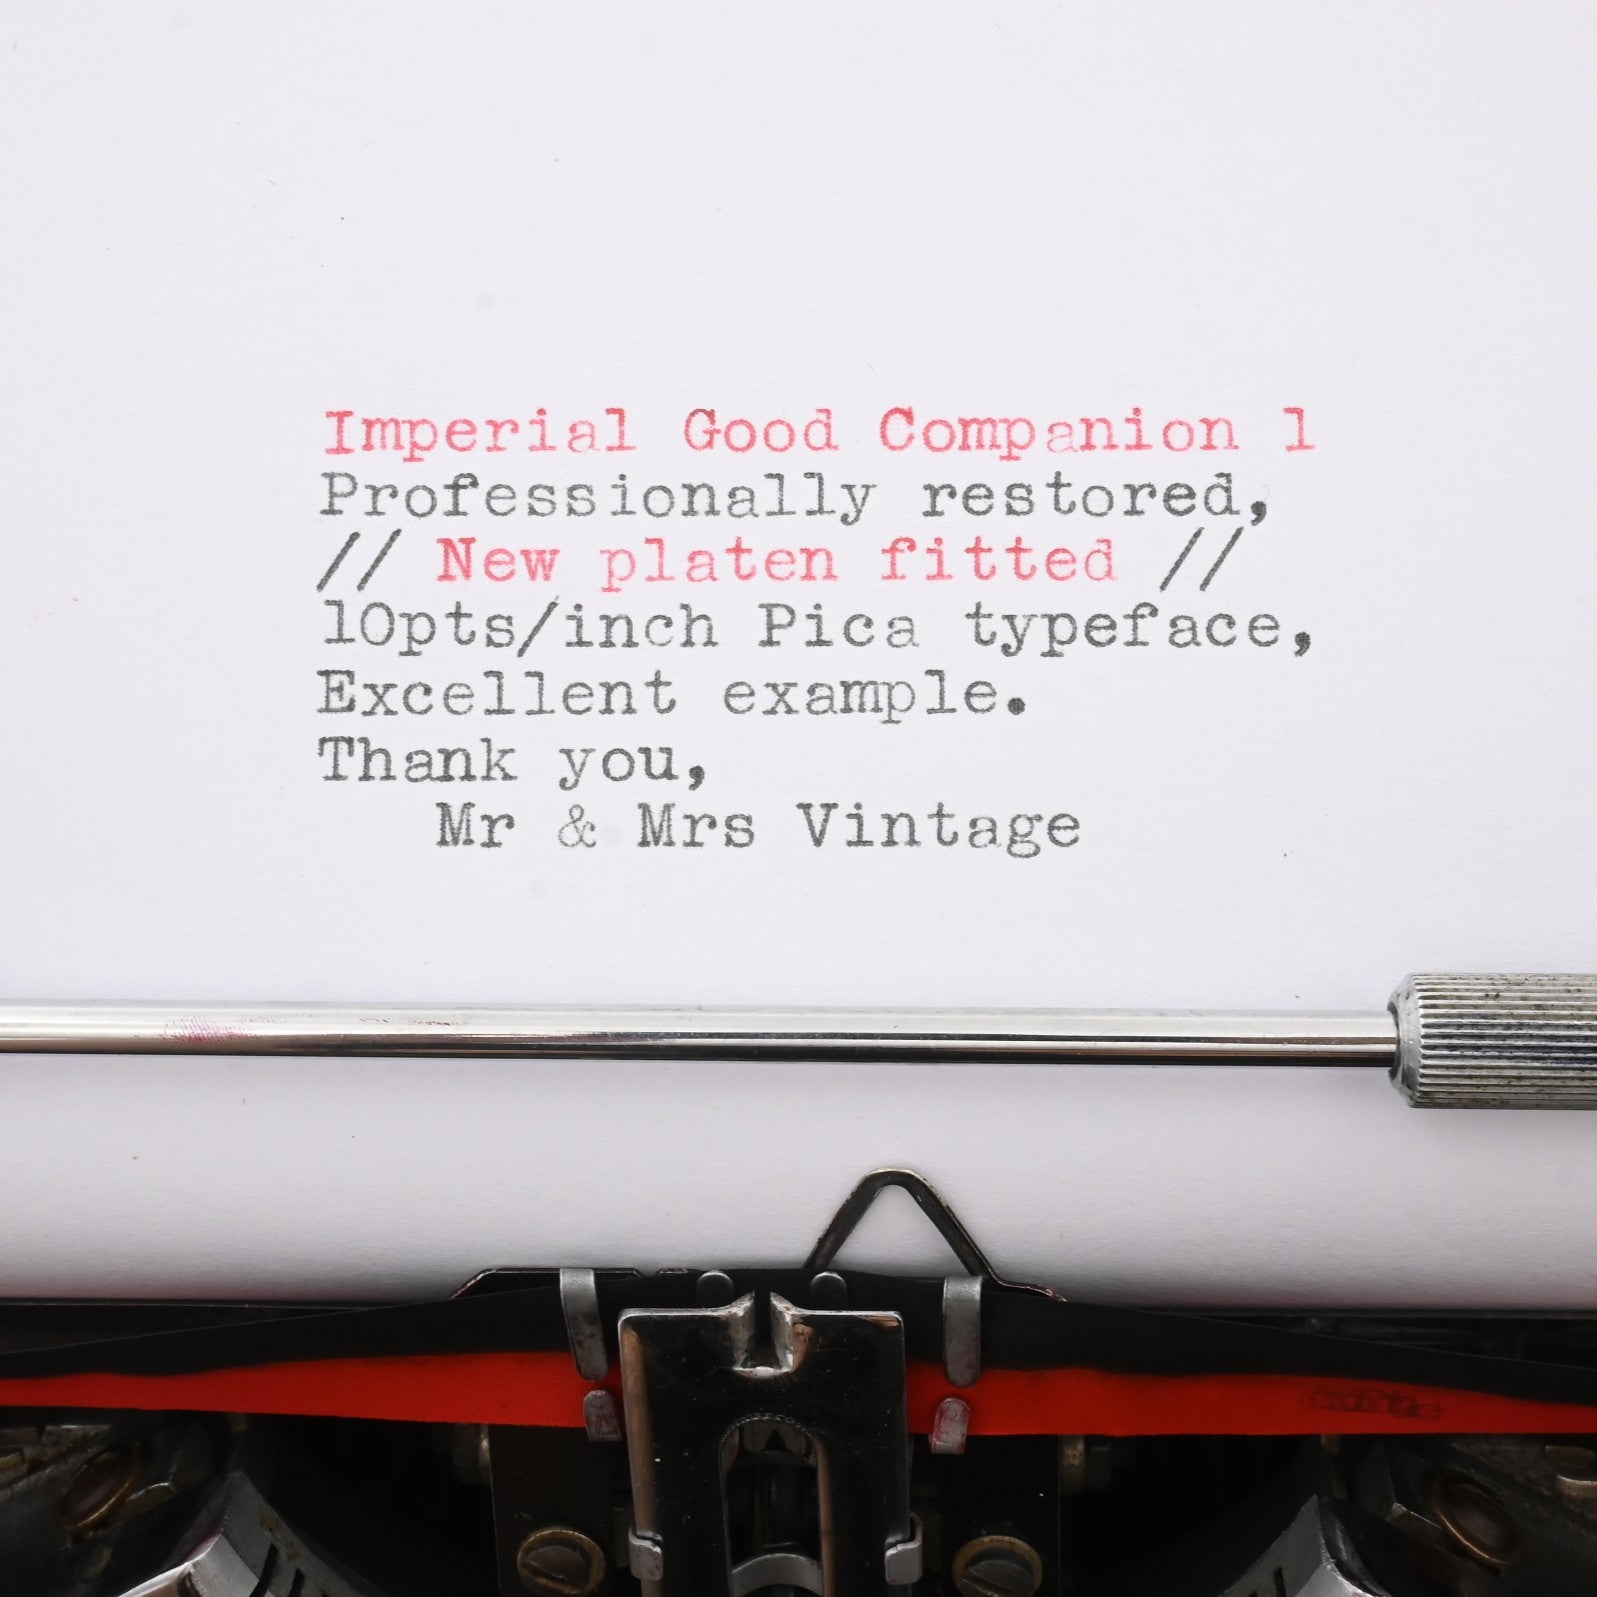 Imperial Good Companion 1
Professionally restored,
// New platen fitted //
10pts/inch Pica typeface,
Excellent example.
Thank you,
Mr & Mrs Vintage